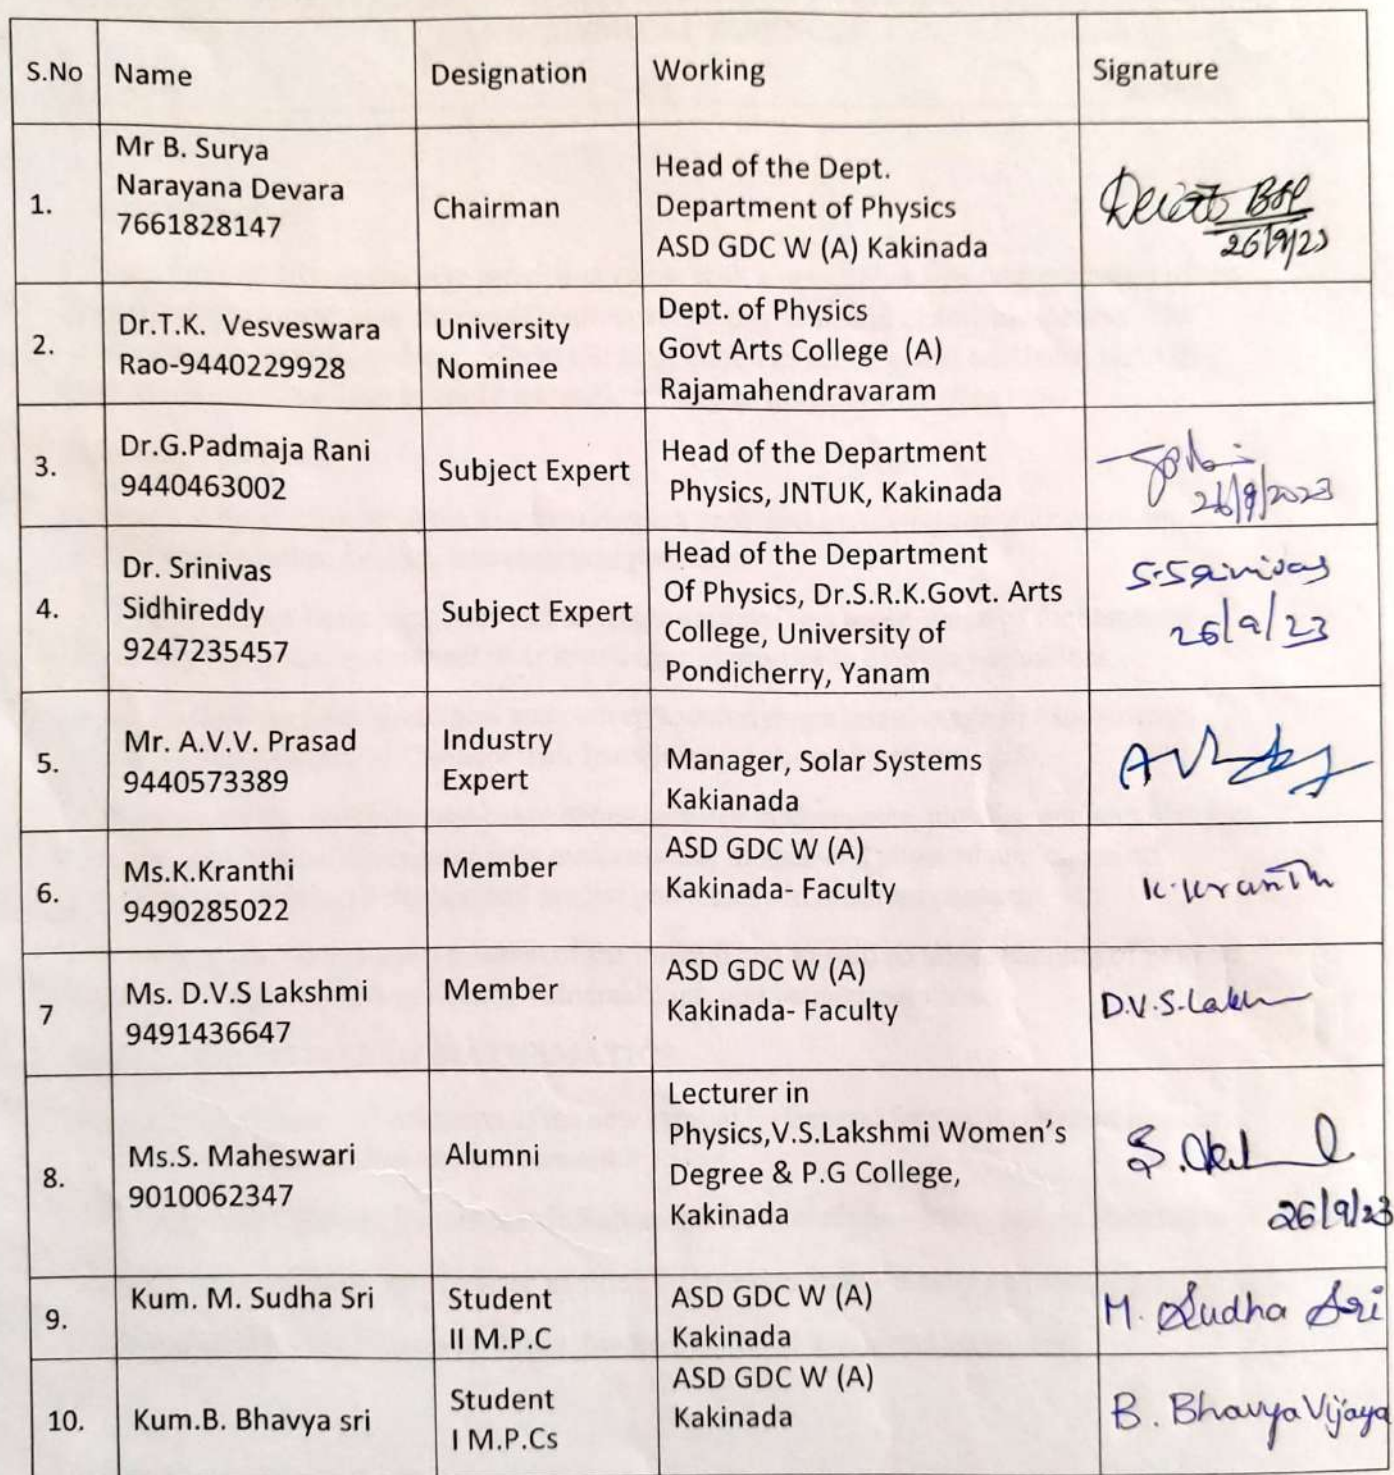 S.No Name Designation Working Signature
1.
Mr B. Surya
Narayana Devara
7661828147
Chairman
Head of the Dept.
Department of Physics
ASD GDC W (A) Kakinada
26/9/23
2.
Dr.T.K. Vesveswara
Rao-9440229928
University
Nominee
Dept. of Physics
Govt Arts College (A)
Rajamahendravaram
3.
Dr.G.Padmaja Rani
9440463002
Subject Expert
Head of the Department
Physics, JNTUK, Kakinada
26/9/2023
4.
Dr. Srinivas
Sidhireddy
9247235457
Subject Expert
Head of the Department
Of Physics, Dr.S.R.K.Govt. Arts
College, University of
Pondicherry, Yanam
S.Srinivas
26/9/23
5.
Mr. A.V.V. Prasad
9440573389
Industry
Expert
Manager, Solar Systems
Kakianada
6.
Ms.K.Kranthi
9490285022
Member
ASD GDC W (A)
Kakinada- Faculty
K.Kranthi
7
Ms. D.V.S Lakshmi
9491436647
Member
ASD GDC W (A)
Kakinada- Faculty
D.V.S.Laksh
8.
Ms.S. Maheswari
9010062347
Alumni
Lecturer in
Physics,V.S.Lakshmi Women's
Degree & P.G College,
Kakinada
26/9/23
9.
Kum. M. Sudha Sri
Student
II M.P.C
ASD GDC W (A)
Kakinada
M. Sudha Sri
10.
Kum.B. Bhavya sri
Student
I M.P.Cs
ASD GDC W (A)
Kakinada
B. Bhavya Vijaya